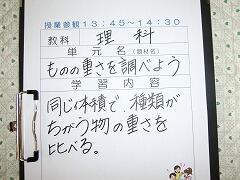 授業参観 13:45～14:30
教科 理科
単元名(題材名)
ものの重さを調べよう
学習内容
同じ体積で、種類が
ちがう物の重さを
比べる。